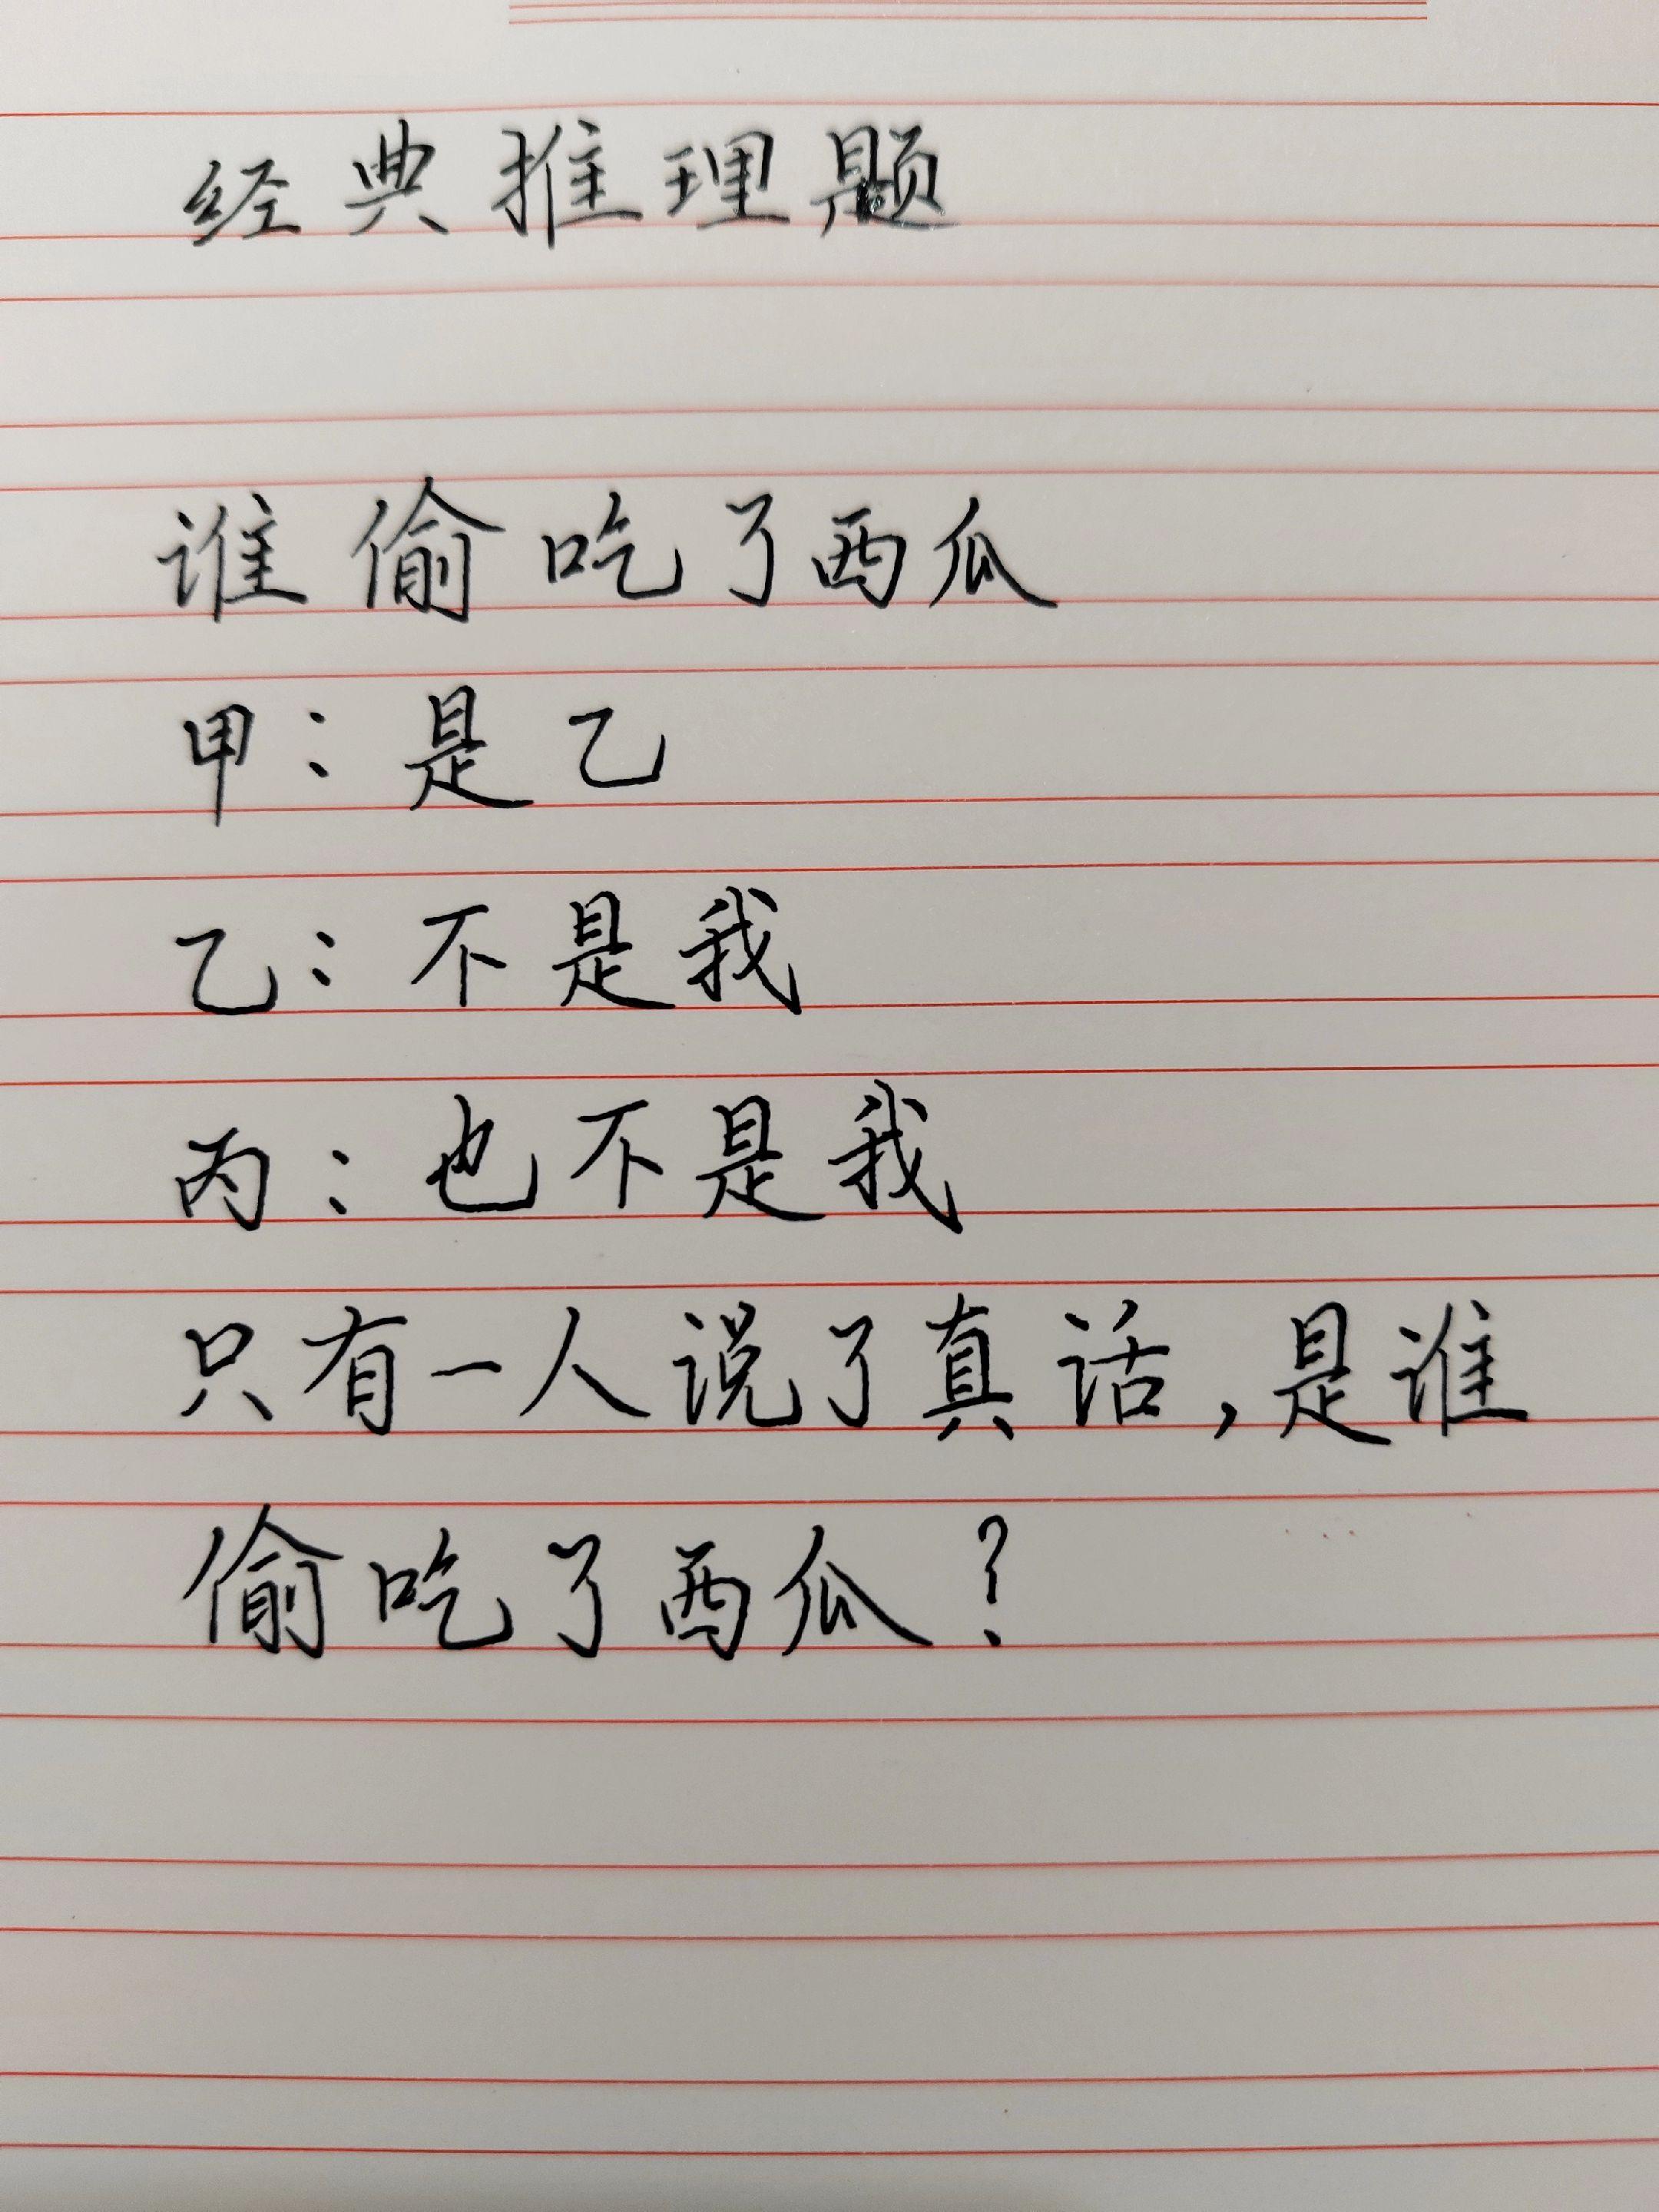 经典推理题
谁偷吃了西瓜
甲：是乙
乙：不是我
丙：也不是我
只有一人说了真话，是谁
偷吃了西瓜？